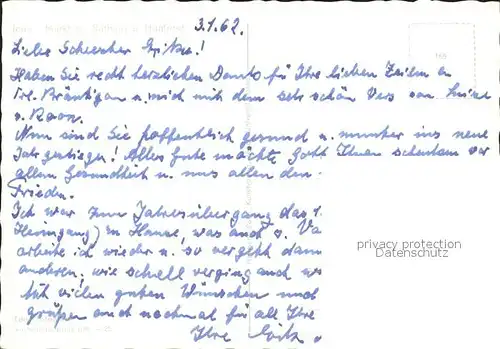 3.1.62.
Liebe Schwester Erika!
Haben Sie recht herzlichen Dank fü Ihre lieben Zeilen an
Frl. Bräutigam u. mich mit dem sehr schön Vers von Luise
v. Roon.
Nun sind Sie hoffentlich gesund u. munter ins neue
Jahr gestiegen! Alles Gute möchte Gott Ihnen schenken vor
allem Gesundheit u. uns allen den
Frieden.
Ich war zum Jahresübergang das 1.
(Heimgang) zu Hause, was auch
arbeite ich wieder u. so vergeht dann
anderen; wie schnell verging auch
Mit vielen guten Wünschen und
grüßen auch nochmal für all Ihre
Ihre
privacy protection
Datenschutz